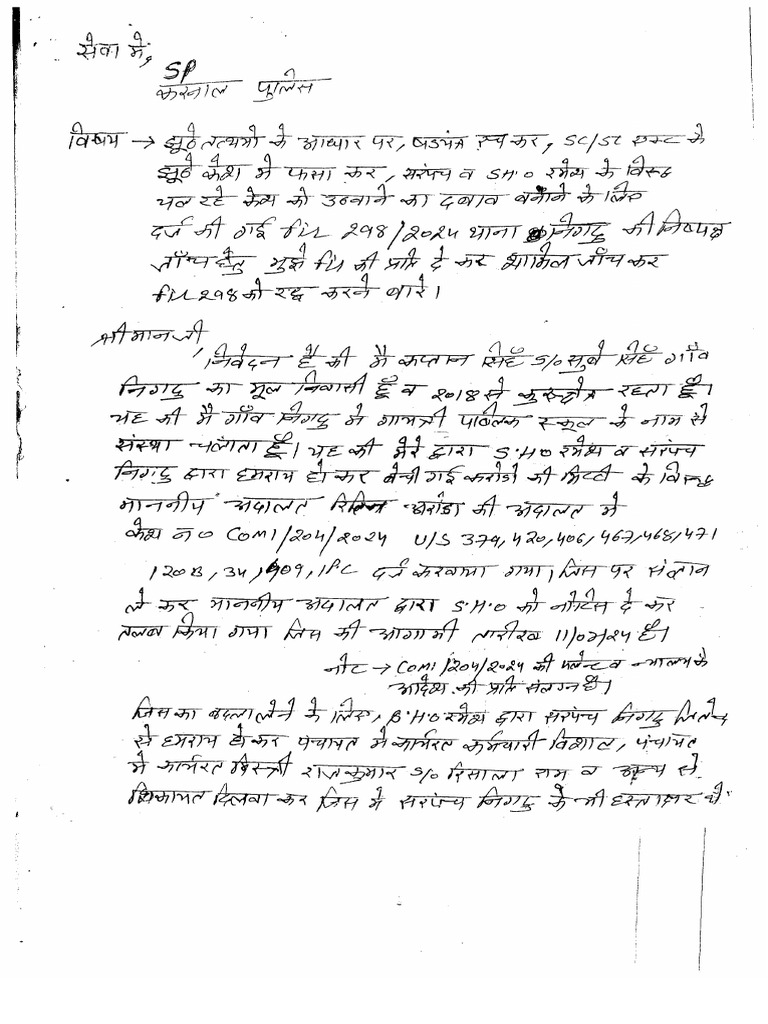 सेवा में,
SP
करनाल पुलिस
विषय → झूठे तत्थयो के आधार पर, षडयंत्र रच कर, SC/ST एक्ट के
झूठे केश में फसा कर, सरपंच व S.H.O रमेश के विरूद्ध
चल रहे केश को उठवाने का दबाव बनाने के लिए
दर्ज की गई fir 298/2024 थाना निगदु की निष्पक्ष
जाँच हेतु मुझे fir की प्रति दे कर शामिल जाँच कर
fir 298 को रद्ध करने बारे।
श्री मान जी,
निवेदन है की मै कप्तान सिहँ S/o सुबे सिहँ गाँव
निगदु का मूल निवासी हूँ व 2018 से कुरूक्षेत्र रहता हूँ।
यह की मै गाँव निगदु मे गायत्री पब्लिक स्कूल के नाम से
संस्था चलाता हूँ। यह की मेरे द्वारा S.H.O रमेश व सरपंच
निगदु द्वारा हमराय हो कर बेची गई करोडो की मिटटी के विरूद्ध
माननीय अदालत घरोंडा की अदालत मे
केश न० COMI/204/2024 U/S 379,420,406,467,468,471
120B, 34, 409, IPC दर्ज करवाया गया, जिस पर संज्ञान
ले कर माननीय अदालत द्वारा S.H.O को नोटिस दे कर
तलब किया गया जिस की आगामी तारीख 11/07/24 है।
नोट → COMI/204/2024 की व न्यालय के
आदेश की प्रति संलग्न है।
जिस का बदला लेने के लिए, S.H.O रमेश द्वारा सरपंच निगदु
से हमराय हो कर पंचायत मे कार्यरत कर्मचारी विशाल, पंचायत
मे कार्यरत मिस्त्री राजकुमार S/o रिसाला राम व अन्य से
शिकायत दिलवा कर जिस मे सरपंच निगदु के भी हस्ताक्षर थे